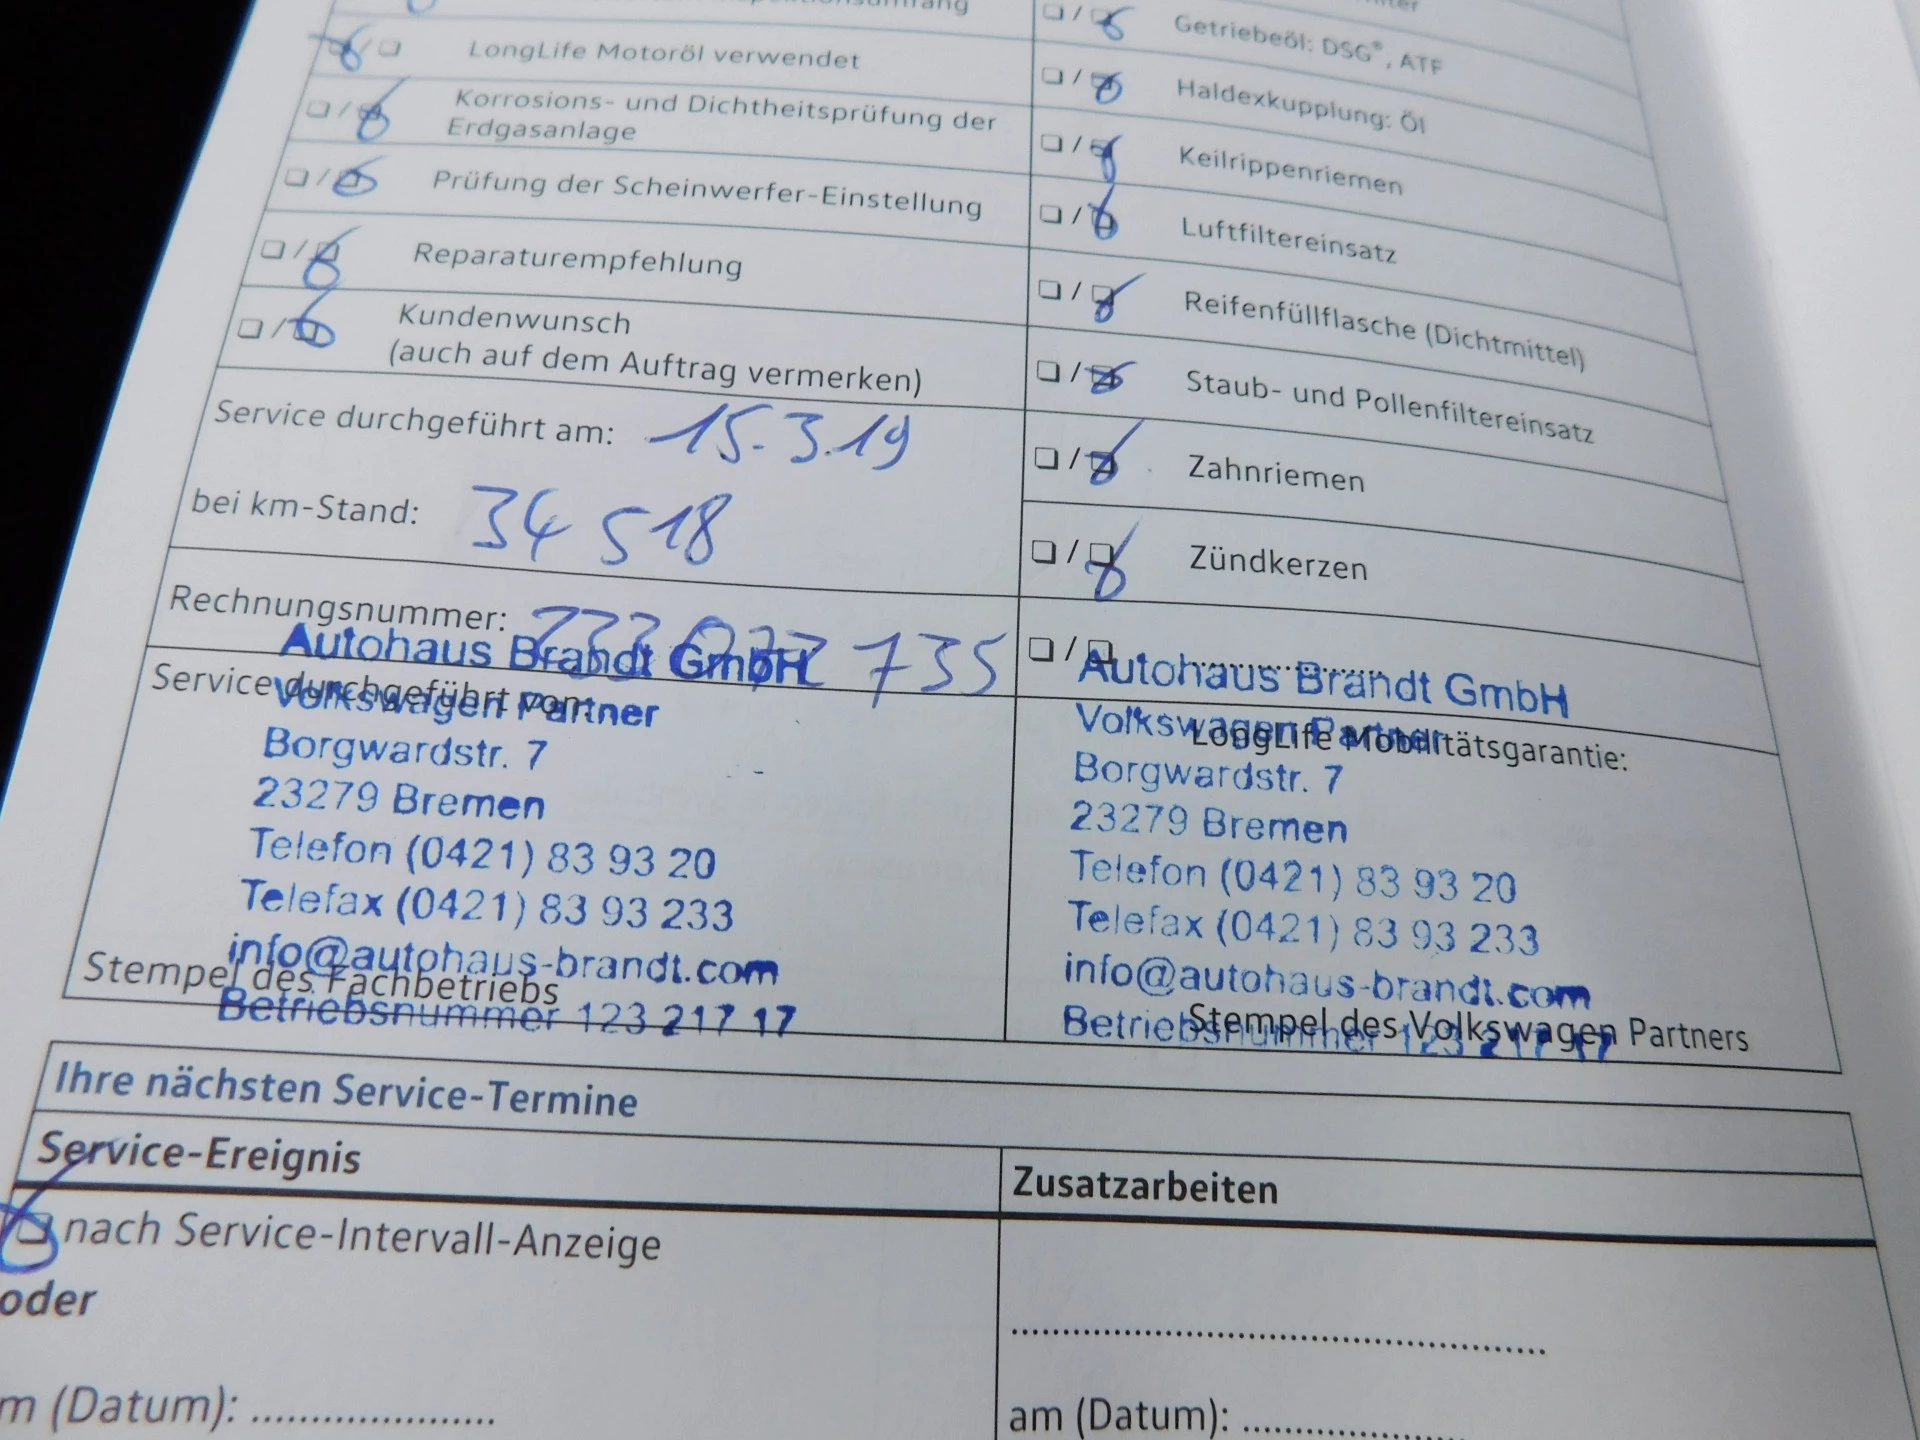 LongLife Motoröl verwendet
Korrosions- und Dichtheitsprüfung der
Erdgasanlage
Prüfung der Scheinwerfer-Einstellung
Reparaturempfehlung
Kundenwunsch
(auch auf dem Auftrag vermerken)
Service durchgeführt am: 15.3.19
bei km-Stand: 34 518
Rechnungsnummer: 735
Autohaus Brandt GmbH
Service durchgeführt von:
Volkswagen Partner
Borgwardstr. 7
23279 Bremen
Telefon (0421) 83 93 20
Telefax (0421) 83 93 233
info@autohaus-brandt.com
Stempel des Fachbetriebs
Betriebsnummer 123 217 17
Getriebeöl: DSG®, ATF
Haldexkupplung: Öl
Keilrippenriemen
Luftfiltereinsatz
Reifenfüllflasche (Dichtmittel)
Staub- und Pollenfiltereinsatz
Zahnriemen
Zündkerzen
Autohaus Brandt GmbH
Volkswagen Partner
LongLife Mobilitätsgarantie:
Borgwardstr. 7
23279 Bremen
Telefon (0421) 83 93 20
Telefax (0421) 83 93 233
info@autohaus-brandt.com
Stempel des Volkswagen Partners
Betriebsnummer 123 217 17
Ihre nächsten Service-Termine
Service-Ereignis
nach Service-Intervall-Anzeige
oder
(Datum):
Zusatzarbeiten
am (Datum):